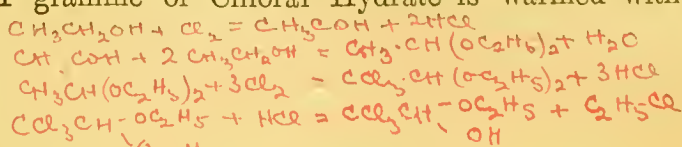 gramme of Chloral Hydrate is warmed with
CH3CH2OH + Cl2 = CH3COH + 2HCl
CH COH + 2 CH3CH2OH = CH3·CH(OC2H5)2 + H2O
CH3CH(OC2H5)2 + 3Cl2 - CCl3·CH(OC2H5)2 + 3HCl
CCl3CH-OC2H5 + HCl = CCl3CH-OC2H5 + C2H5Cl
OH